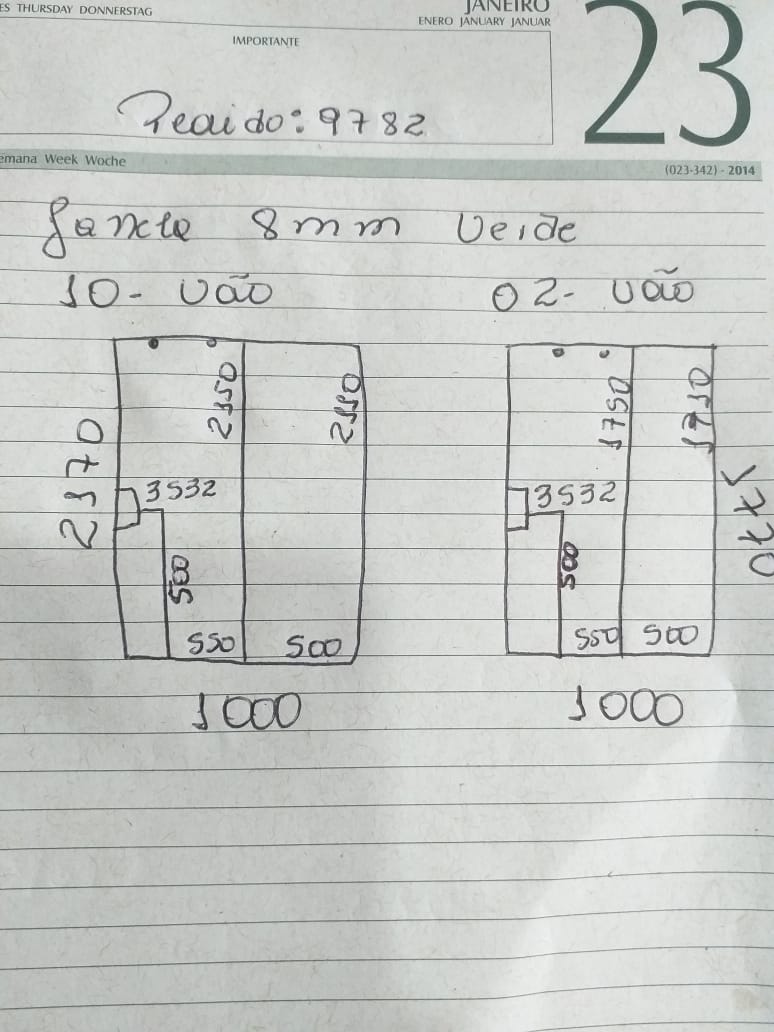 ES THURSDAY DONNERSTAG
JANEIRO
ENERO JANUARY JANUAR
23
IMPORTANTE
Pedido: 9782
emana Week Woche
(023-342) - 2014
Janela 8mm Verde
10- Vão 02- Vão
2170 2150 2110 1750 1710 1770
3532 3532
500 500
550 500 550 500
1000 1000